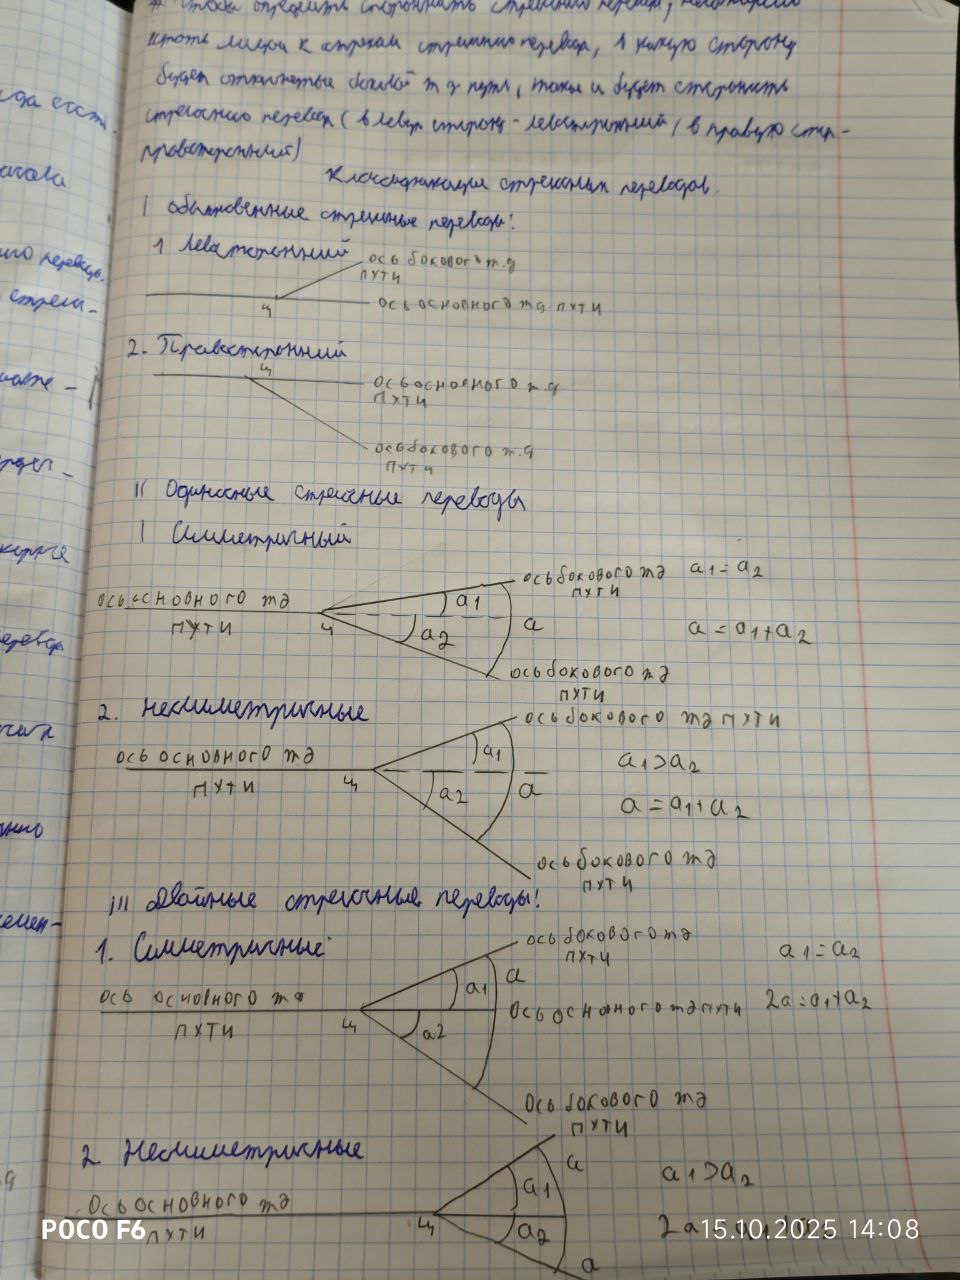 # Чтобы определить сторонность стрелочного перевода, необходимо
встать лицом к стрелкам стрелочного перевода, в какую сторону
будет отклоняться боковой ж д путь, такой и будет сторонность
стрелочного перевода (в левую сторону - левосторонний, в правую стор-
правосторонний)
Классификация стрелочных переводов.
I Обыкновенные стрелочные переводы:
1 Левосторонний
ось бокового ж.д
пути
ось основного жд. пути
ц
2. Правосторонний
ц
ось основного ж.д
пути
ось бокового ж.д
пути
II Одиночные стрелочные переводы
1 Симметричный
ось бокового жд
пути
a1 = a2
ось основного жд
пути
ц
a1
a2
a
a = a1+a2
ось бокового жд
пути
2. несимметричные
ось бокового жд пути
ось основного жд
пути
ц
a1
a2
a
a1>a2
a = a1+a2
ось бокового жд
пути
III Двойные стрелочные переводы:
1. Симметричные
ось бокового жд
пути
a1 = a2
ось основного жд
пути
ц
a1
a2
a
ось основного жд пути
2a = a1+a2
ось бокового жд
пути
2 Несимметричные
ось основного жд
пути
ц
a1
a2
a
a
a1>a2
2a
POCO F6
15.10.2025 14:08